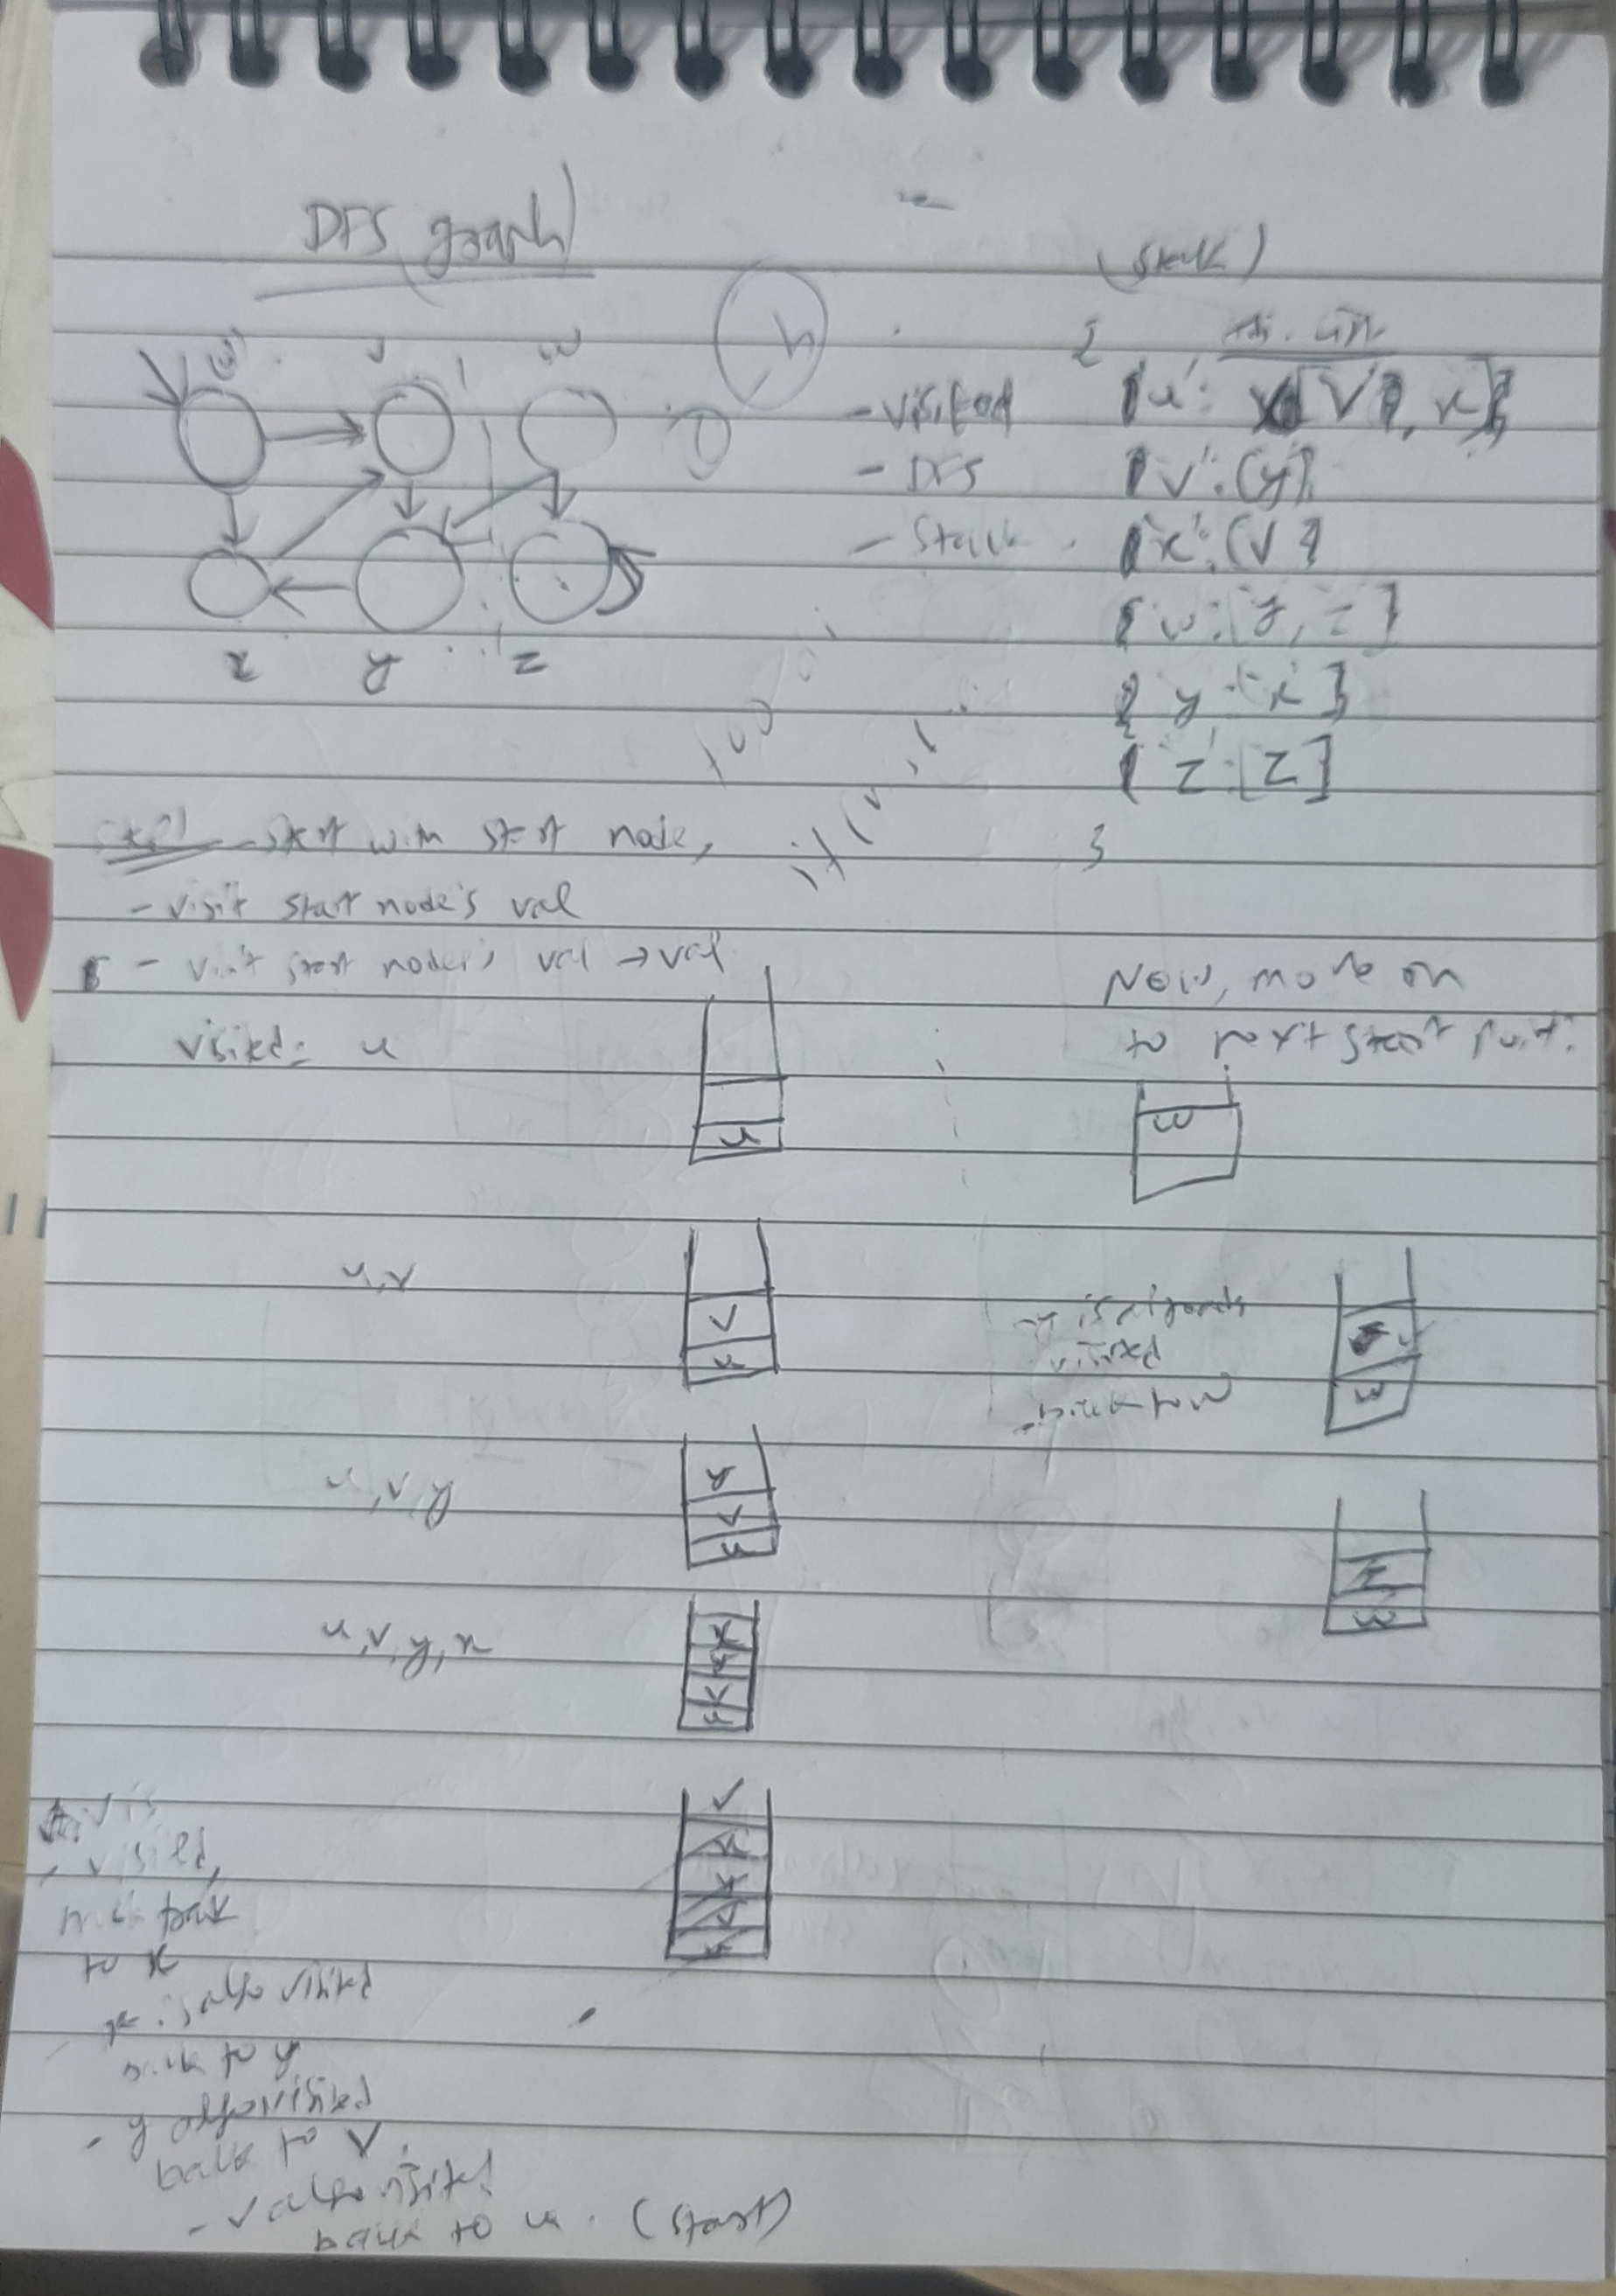 DFS (graph)
(stack)
u v w
h
- visited
- DFS
- Stack
{
'u': [v, x],
'v': [y],
'x': [v]
w: [y, z]
y : x
z : [z]
}
x y z
- start with start node,
- visit start node's val
- visit start node's val → val
visited = u
u
u, v
v
u
u, v, y
y
v
u
u, v, y, x
x
y
v
u
v
x
y
v
u
v is
visited,
back
to x
- x is also visited
back to y
- y also visited
back to v.
- v also visited
back to u. (start)
Now, move on
to next start point.
w
- y is already
visited
- back to w
w
w